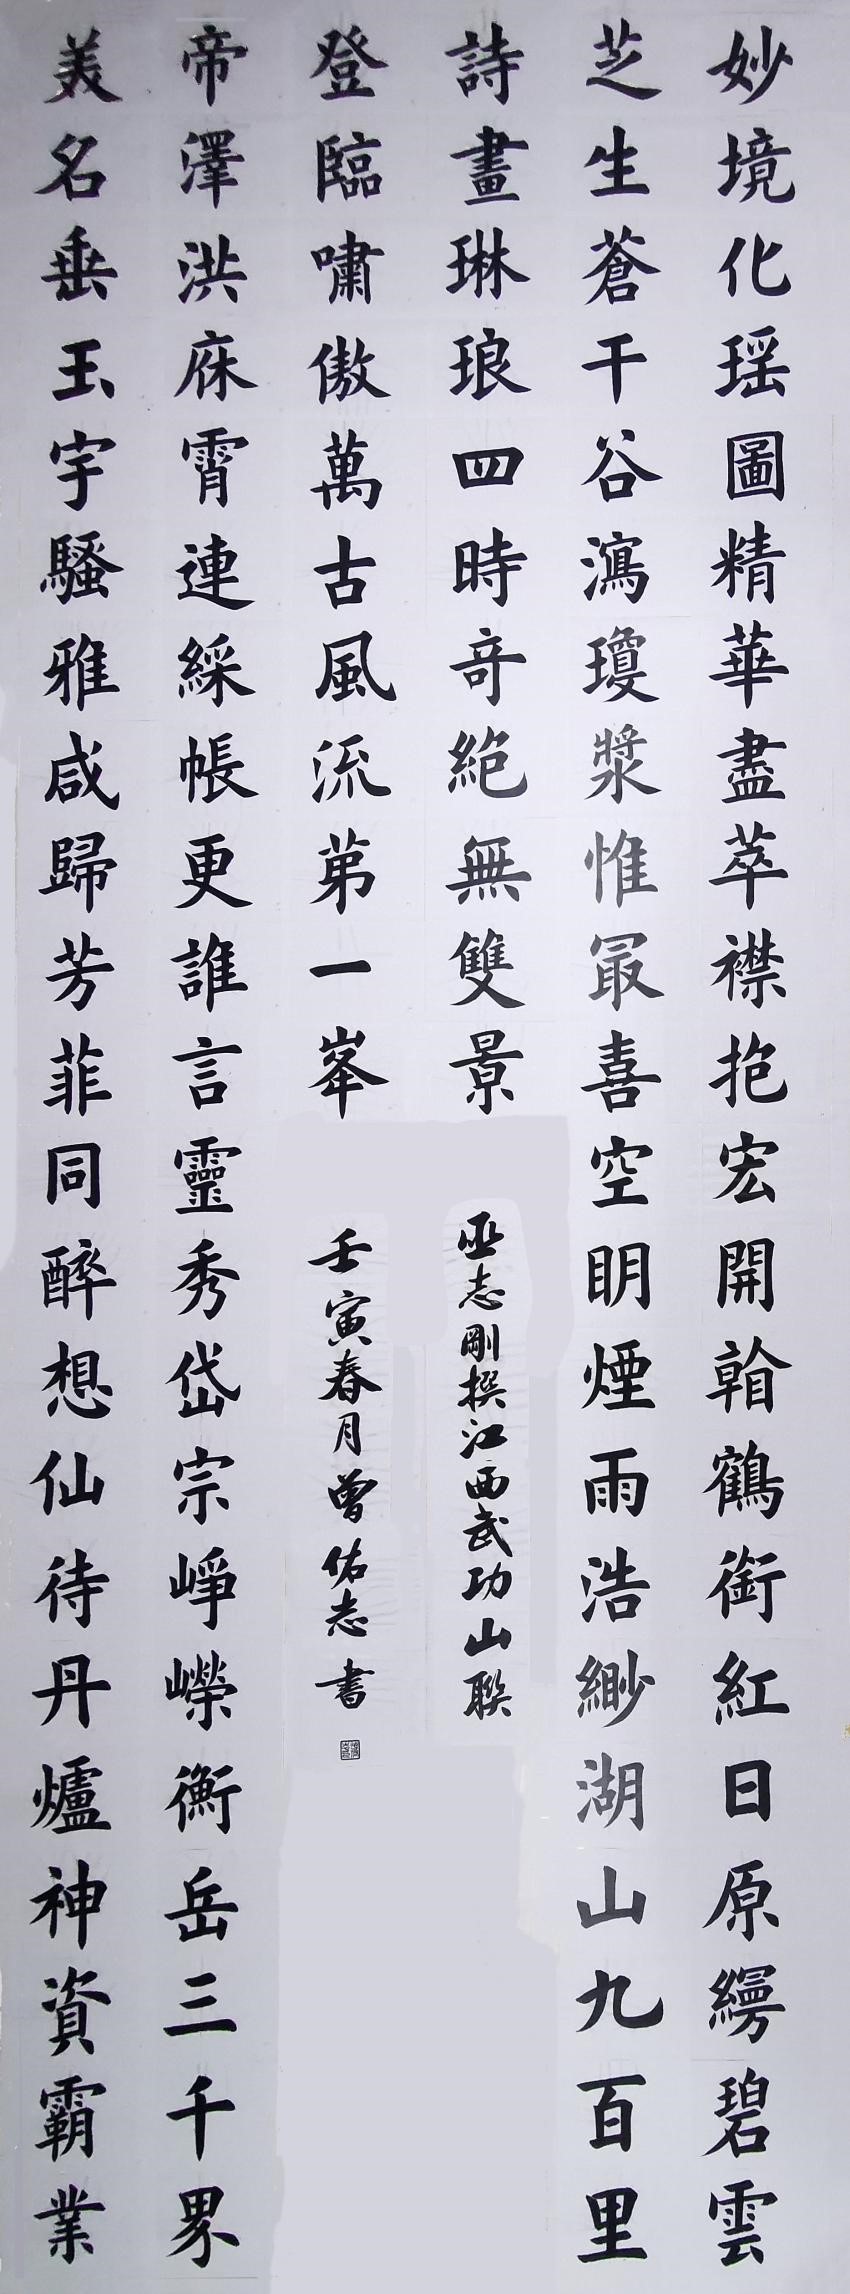 妙境化瑶圖精華盡萃襟抱宏開看鶴銜紅日原縵碧雲
芝生蒼干谷瀉瓊漿惟冣喜空眀煙雨浩緲湖山九百里
詩畫琳琅四時奇絕無雙景
巫志剛撰江西武功山聯
美名垂玉宇騷雅咸歸芳菲同醉想仙待丹爐神資霸業
帝澤洪庥霄連綵帳更誰言靈秀岱宗崢嶸衡岳三千界
登臨嘯傲萬古風流苐一峯
壬寅春月曾佑志書